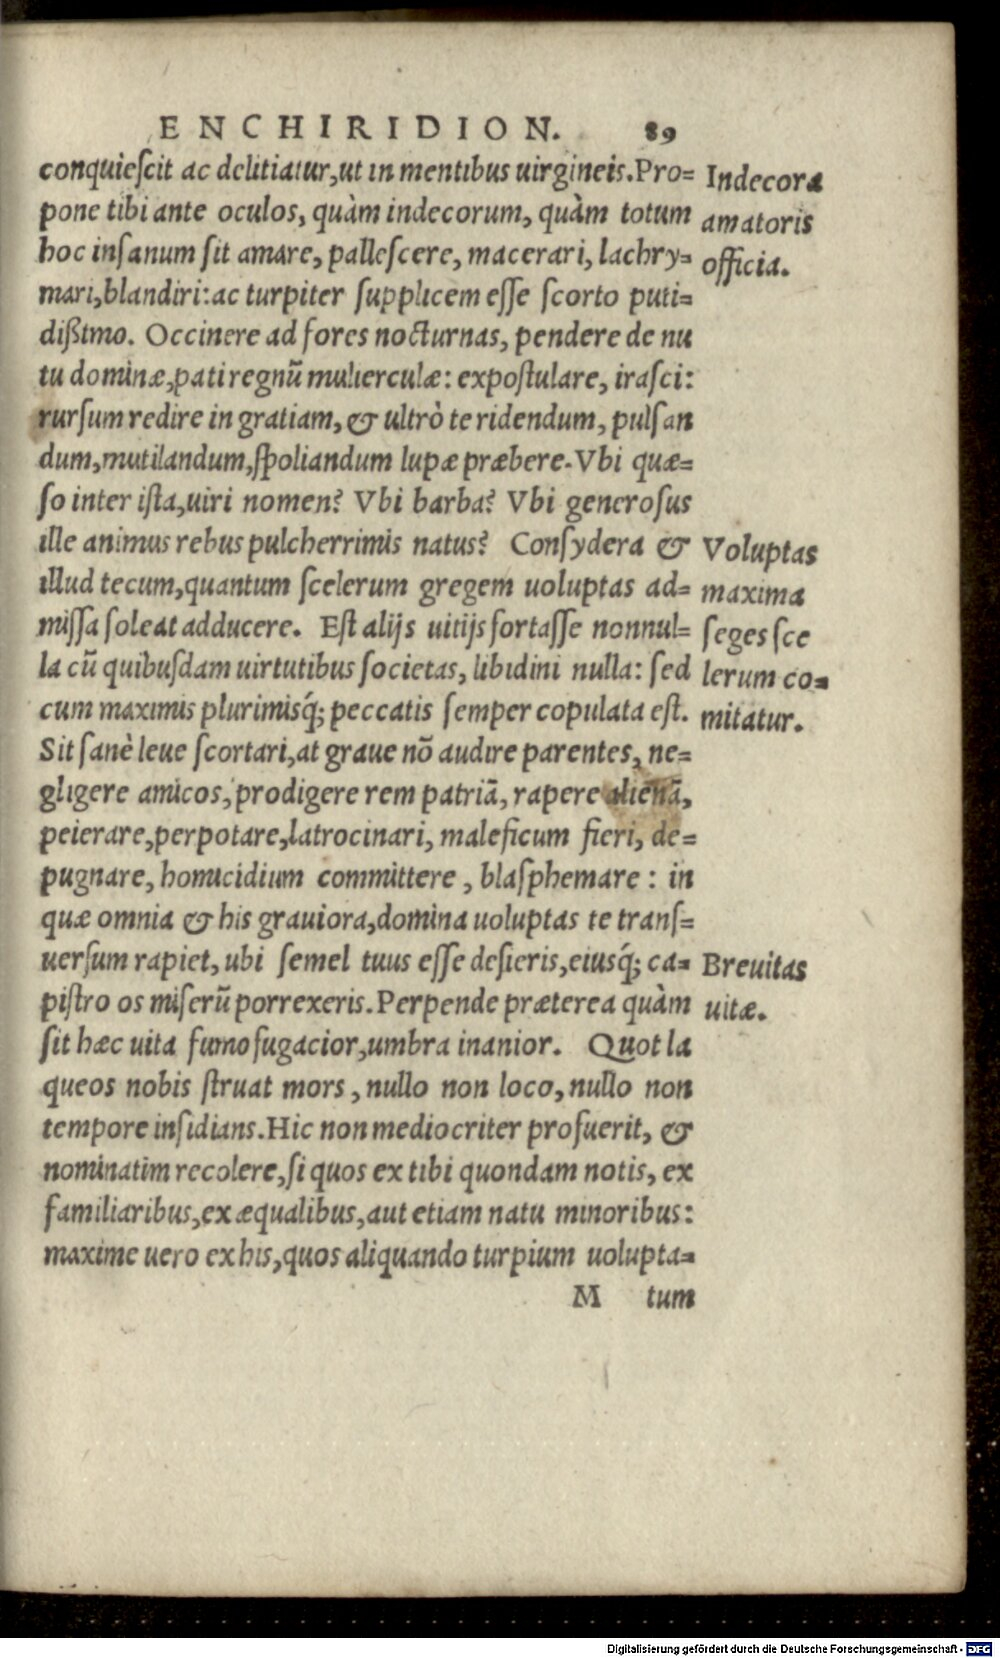 ENCHIRIDION. 89
conquieſcit ac delitiatur,ut in mentibus uirgineis.Pro=
pone tibi ante oculos, quàm indecorum, quàm totum
hoc inſanum ſit amare, palleſcere, macerari, lachry=
mari,blandiri:ac turpiter ſupplicem eſſe ſcorto puti=
dißimo. Occinere ad fores nocturnas, pendere de nu
tu dominæ,pati regnũ mulierculæ: expoſtulare, iraſci:
rurſum redire in gratiam, & ultrò te ridendum, pulſan
dum,mutilandum,ſpoliandum lupæ præbere. Vbi quæ=
ſo inter iſta,uiri nomen? Vbi barba? Vbi generoſus
ille animus rebus pulcherrimis natus? Conſydera &
illud tecum,quantum ſcelerum gregem uoluptas ad=
miſſa ſoleat adducere. Eſt alijs uitijs fortaſſe nonnul=
la cũ quibuſdam uirtutibus ſocietas, libidini nulla: ſed
cum maximis plurimisq́; peccatis ſemper copulata eſt.
Sit ſanè leue ſcortari,at graue nõ audire parentes, ne=
gligere amicos, prodigere rem patriã, rapere alienã,
peierare,perpotare,latrocinari, maleficum fieri, de=
pugnare, homicidium committere, blaſphemare: in
quæ omnia & his grauiora,domina uoluptas te tranſ=
uerſum rapiet, ubi ſemel tuus eſſe deſieris,eiusq́; ca=
piſtro os miſerũ porrexeris. Perpende præterea quàm
ſit hæc uita fumo fugacior,umbra inanior. Quot la
queos nobis ſtruat mors, nullo non loco, nullo non
tempore inſidians. Hic non mediocriter profuerit, &
nominatim recolere,ſi quos ex tibi quondam notis, ex
familiaribus,ex æqualibus,aut etiam natu minoribus:
maxime uero ex his,quos aliquando turpium uolupta=
M tum
Indecora
amatoris
officia.
Voluptas
maxima
ſeges ſce
lerum co=
mitatur.
Breuitas
uitæ.
Digitalisierung gefördert durch die Deutsche Forschungsgemeinschaft - DFG